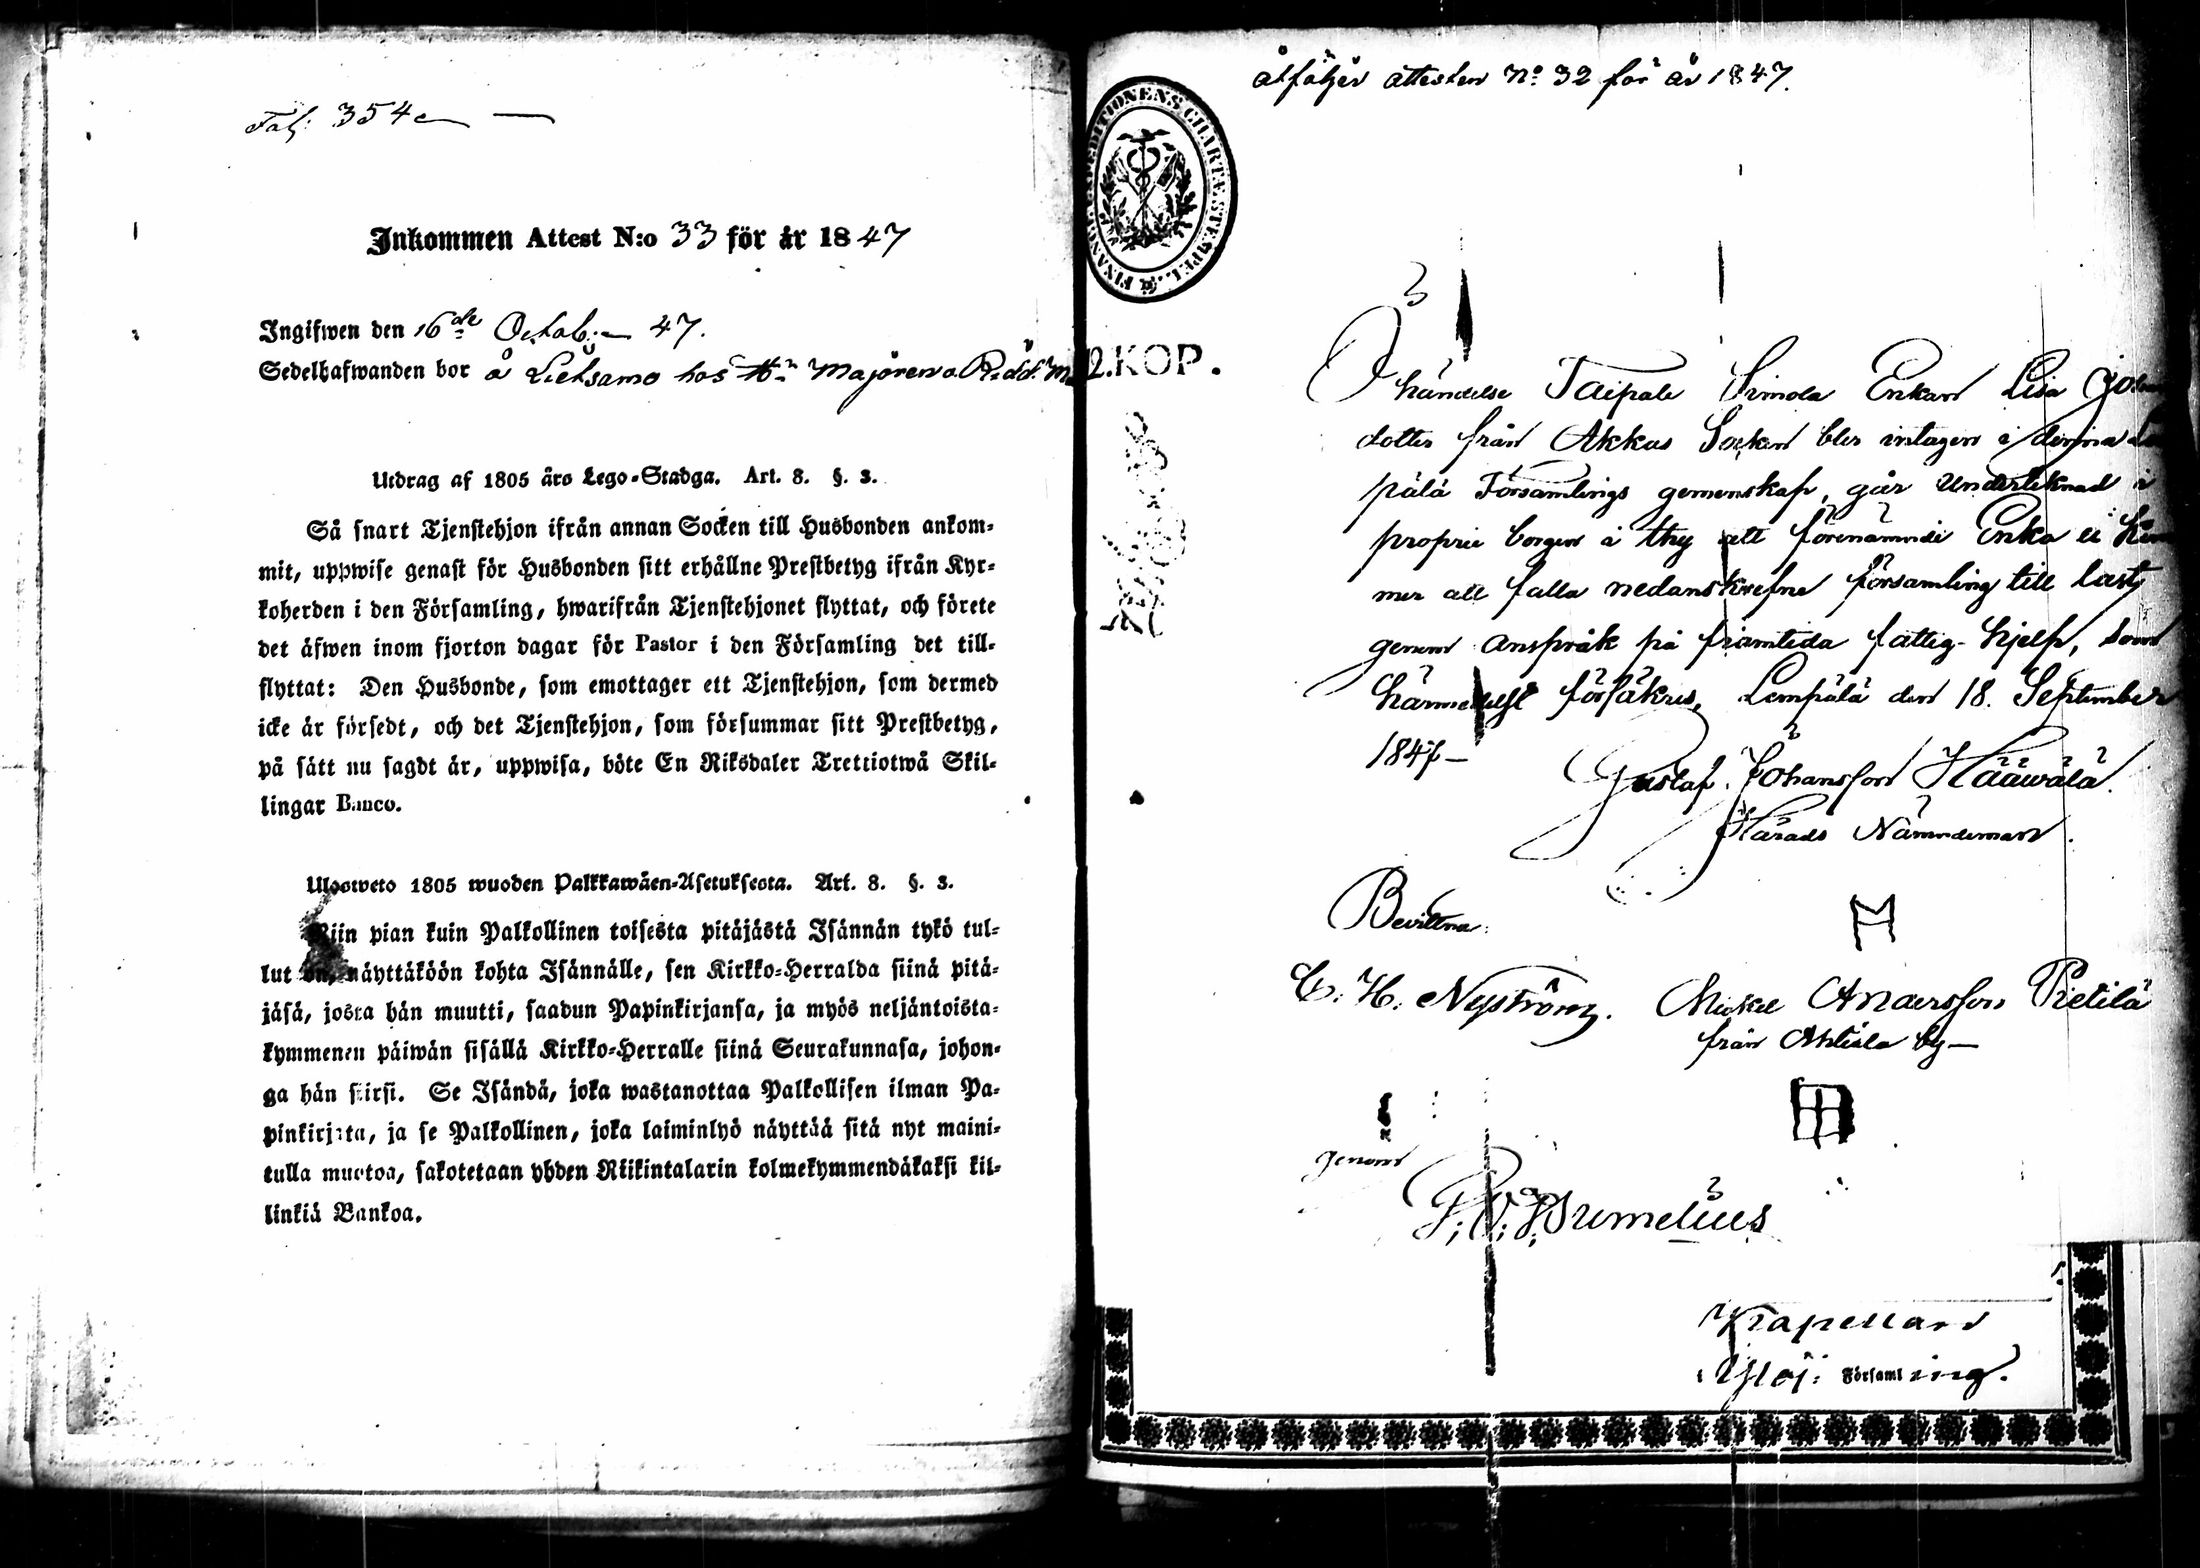 Fol: 354
Inkommen Attest N:o 33 för år 1847
Ingifwen den 16de Octob: 47.
Sedelhafwanden bor å Lietsamo hos Hr Majoren o. Ridd.
Utdrag af 1805 års Lego-Stadga. Art. 8. §. 3.
Så snart Tjenstehjon ifrån annan Socken till Husbonden ankom-
mit, uppwise genast för Husbonden sitt erhållne Prestbetyg ifrån Kyr-
koherden i den Församling, hwarifrån Tjenstehjonet flyttat, och förete
det äfwen inom fjorton dagar för Pastor i den Församling det till-
flyttat: Den Husbonde, som emottager ett Tjenstehjon, som dermed
icke är försedt, och det Tjenstehjon, som försummar sitt Prestbetyg,
på sätt nu sagdt är, uppwisa, böte En Riksdaler Trettiotwå Skil-
lingar Banco.
Ulosweto 1805 wuoden Palkkawäen-Asetuksesta. Art. 8. §. 3.
Niin pian kuin Palkollinen toisesta pitäjästä Isännän tykö tul-
lut on, näyttäköön kohta Isännälle, sen Kirkko-Herralda siinä pitä-
jäsä, josta hän muutti, saadun Papinkirjansa, ja myös neljäntoista-
kymmenen päiwän sisällä Kirkko-Herralle siinä Seurakunnasa, johon-
ga hän siirsi. Se Isändä, joka wastanottaa Palkollisen ilman Pa-
pinkirjata, ja se Palkollinen, joka laiminlyö näyttää sitä nyt maini-
tulla muotoa, sakotetaan yhden Riikintalarin kolmekymmendäkaksi kil-
linkiä Bankoa.
åtföljer attesten No 32 för år 1847.
FINANCE EXPEDITIONENS CHARTÆ STEMPEL
2.KOP.
händelse Taipale Simola Enkan Lisa
dotter från Akkas Socken blir intagen i denna
pälä Församlings gemenskap, går Underteknad i
proprie borgen i thy att förenämnde Enka ei
mer att falla nedanskrefne församling till last
genom anspråk på framtida fattig-hjelp, som
härmedelst försäkres, Lempälä den 18. September
1847-
Gustaf Johansson Hääwälä.
Härads Nämndeman.
Bevittna:
C. H. Nyström. Mickel Andersson Pietilä
från Ahtiala by-
genom
Kapellan
Ylöj: Församling.